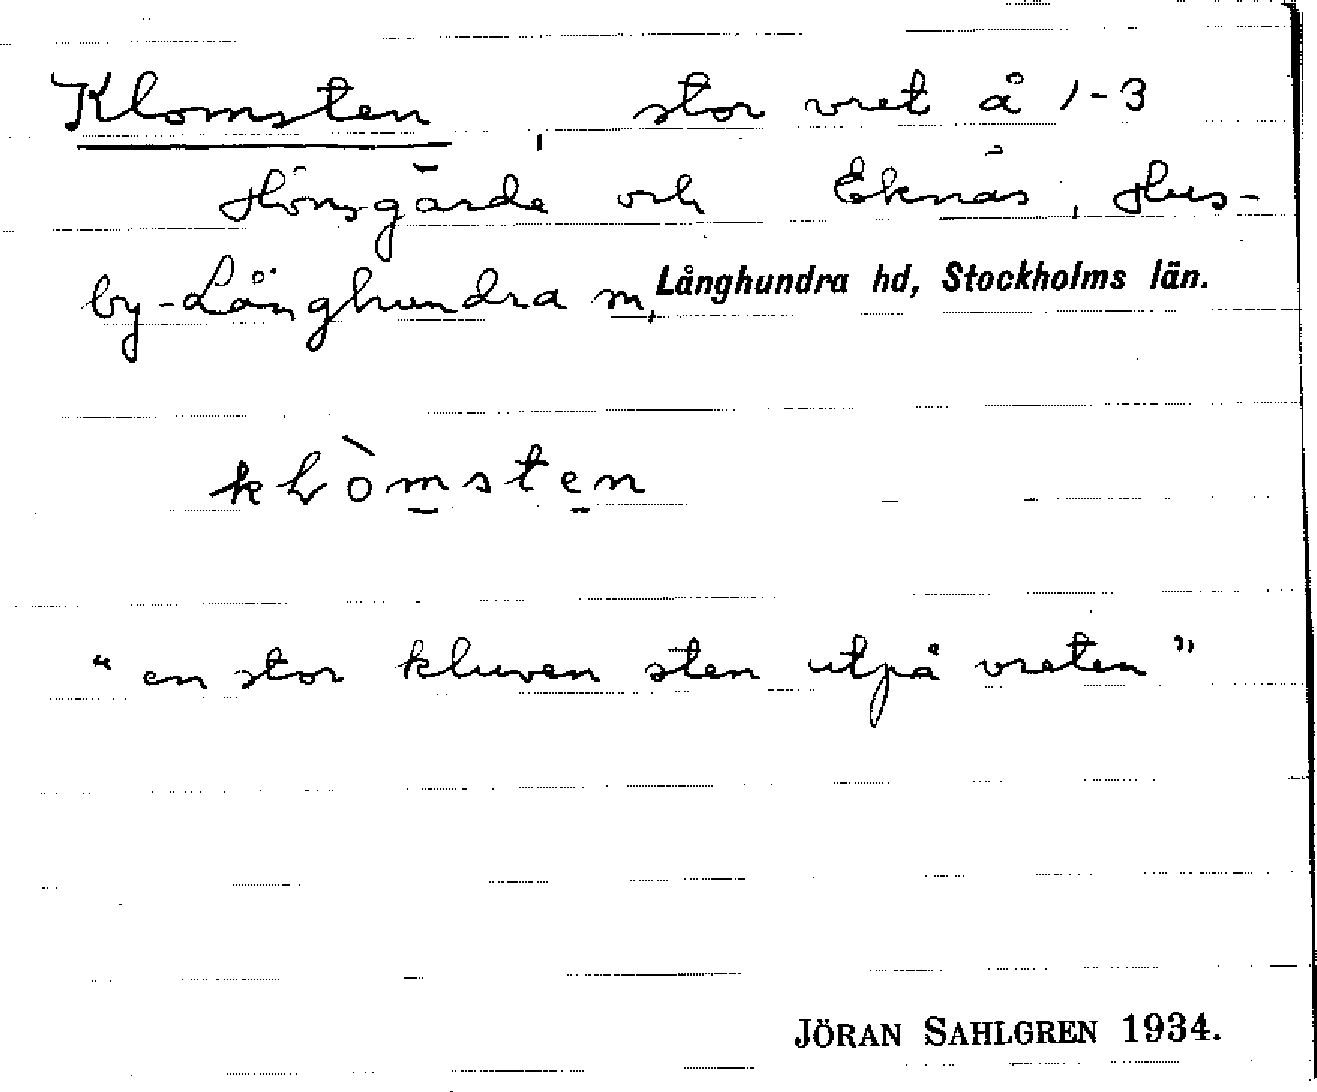 Klomsten, stor vret å 1-3
Hönsgärde och Eknäs, Hus-
by-Långhundra sn, Långhundra hd, Stockholms län.
klòmsten
“en stor kluven sten utpå vreten”
JÖRAN SAHLGREN 1934.